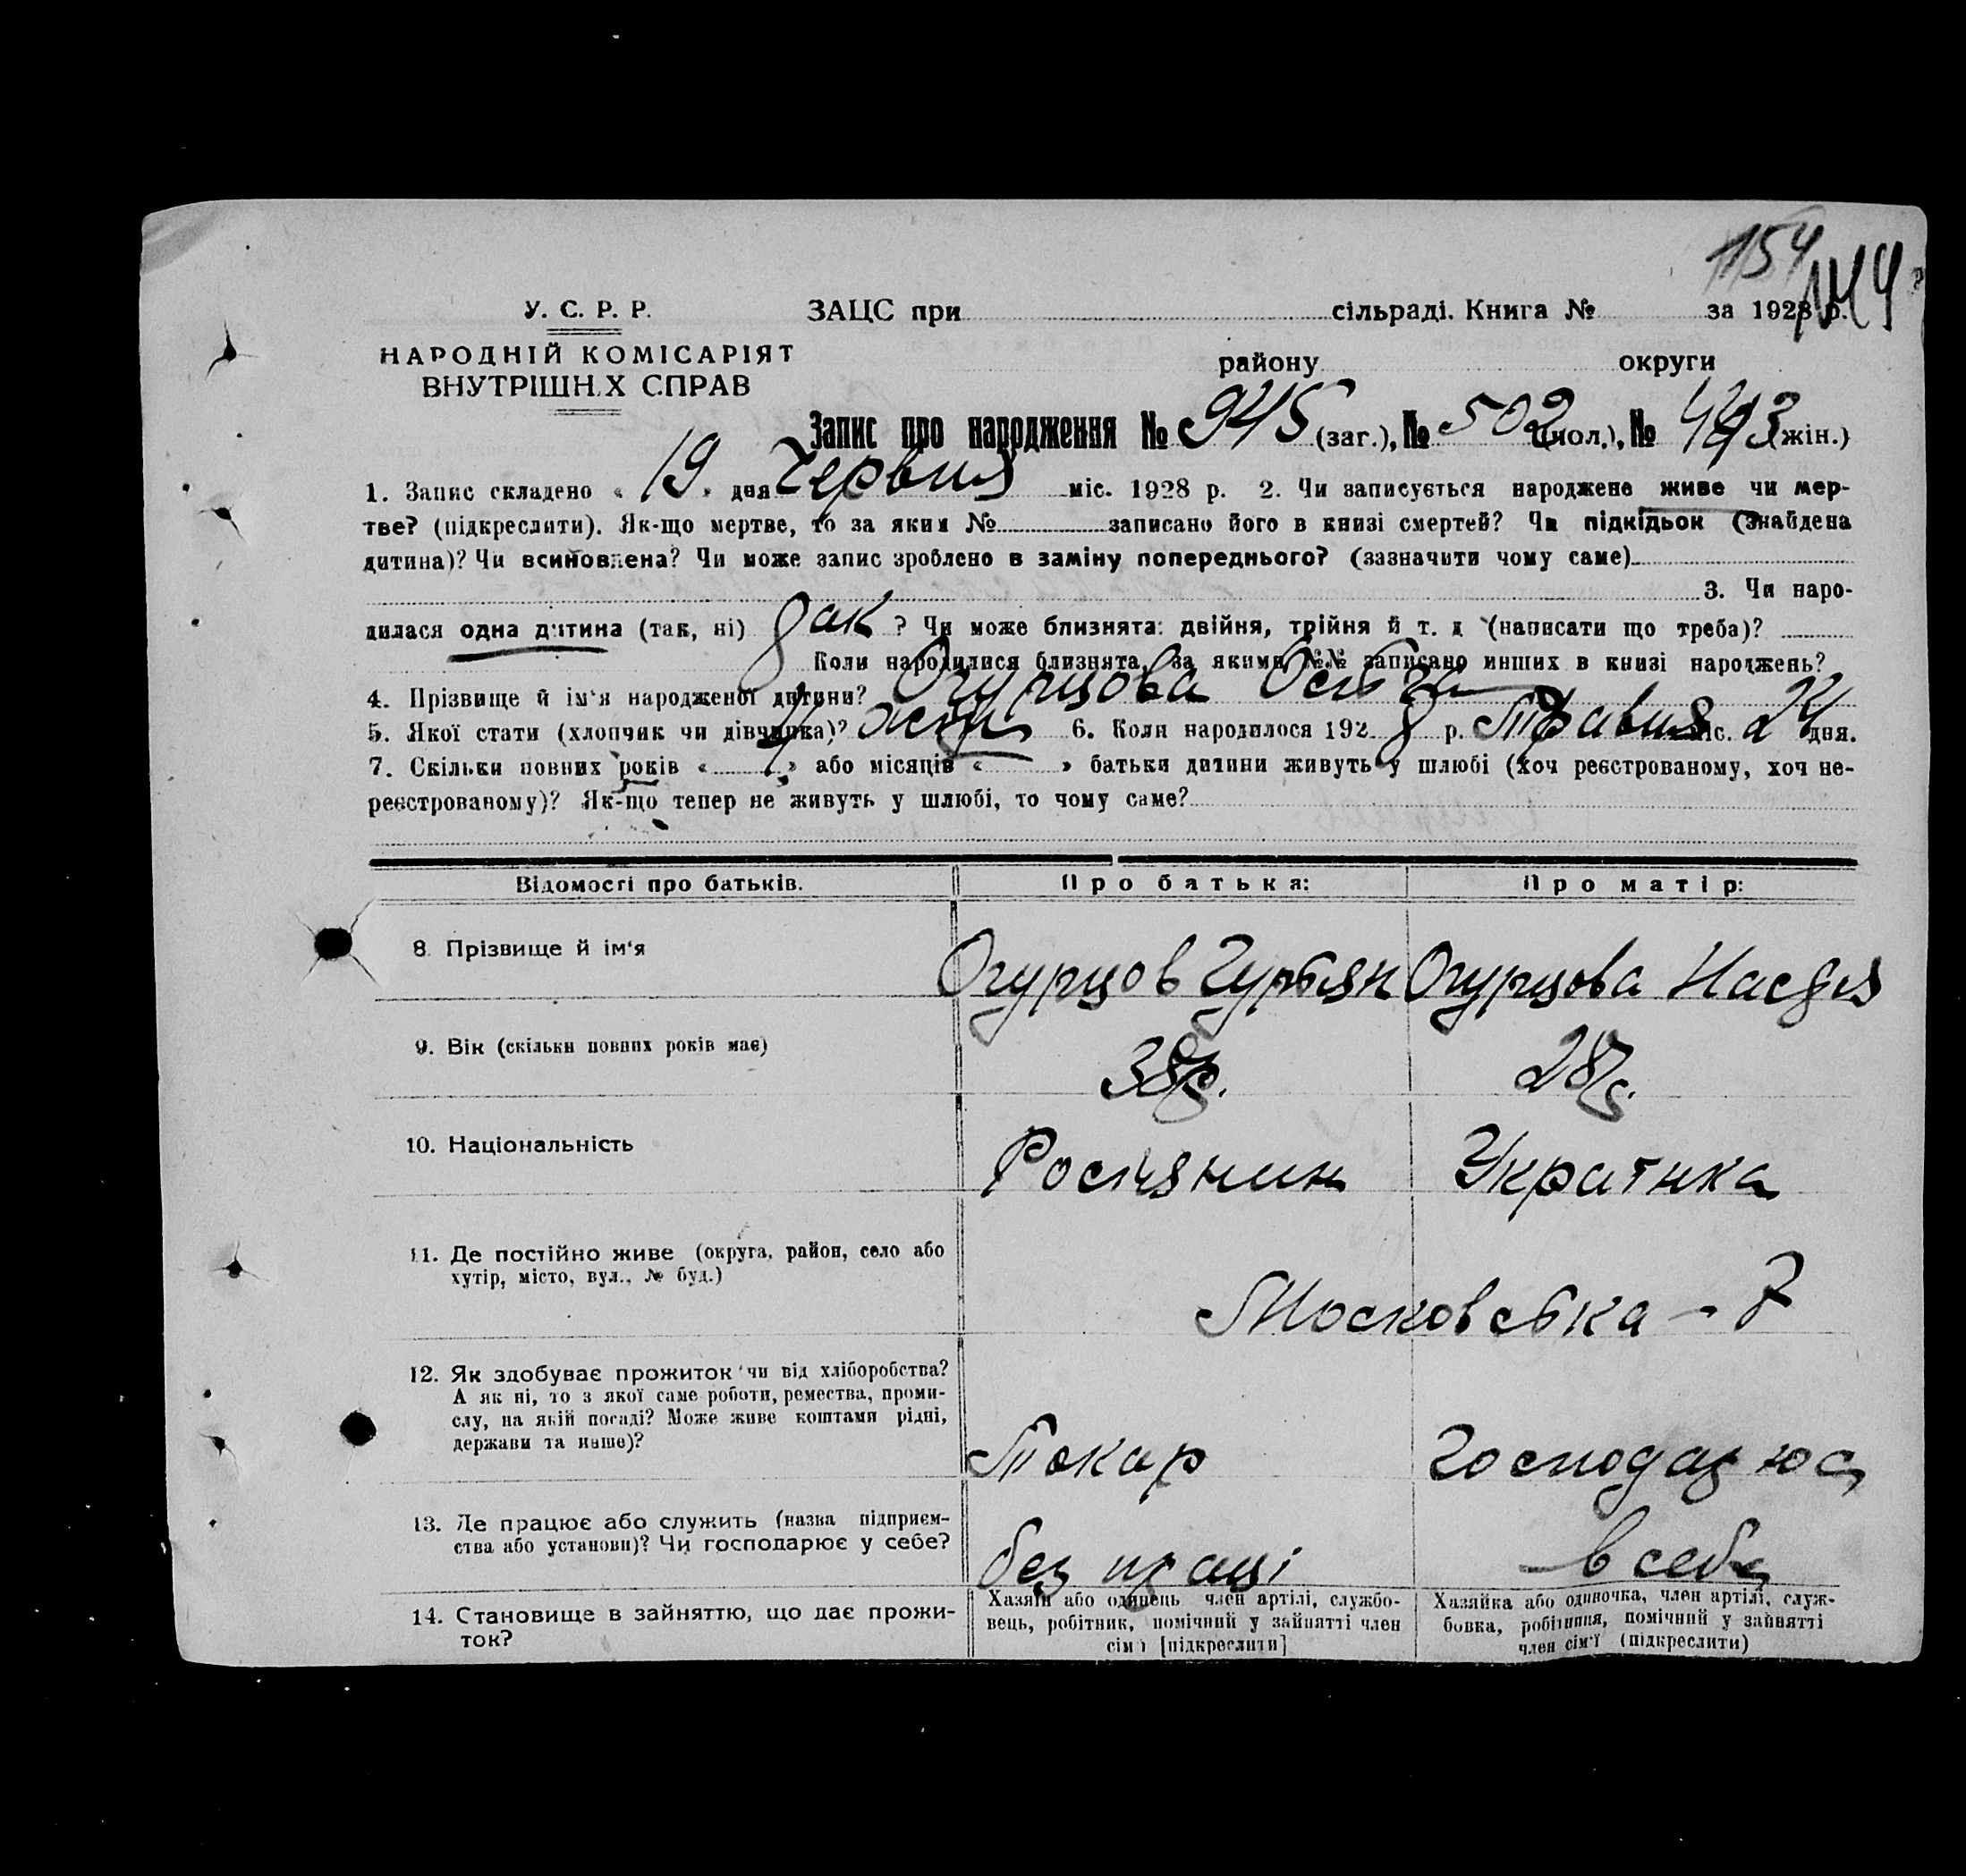 154
144
У. С. Р. Р.
ЗАЦС при сільраді. Книга № за 1928 р.
НАРОДНІЙ КОМІСАРІЯТ
ВНУТРІШН.Х СПРАВ
району округи
Запис про народження № 945 (заг.), № 502 (чол.), № 443 (жін.)
1. Запис складено « 19 » дня Червня міс. 1928 р. 2. Чи записується народжене живе чи мер-
тве? (підкреслити). Як-що мертве, то за яким № записано його в книзі смертей? Чи підкідьок (знайдена
дитина)? Чи всиновлена? Чи може запис зроблено в заміну попереднього? (зазначити чому саме)
3. Чи наро-
дилася одна дитина (так, ні) так ? Чи може близнята: двійня, трійня й т. д (написати що треба)?
Коли народилися близнята, за якими №№ записано инших в книзі народжень?
4. Прізвище й ім'я народженої дитини? Огурцова
5. Якої стати (хлопчик чи дівчинка)? 6. Коли народилося 192 8 р. Травня міс. 24 дня.
7. Скільки повних років « » або місяців « » батьки дитини живуть у шлюбі (хоч реєстрованому, хоч не-
реєстрованому)? Як-що тепер не живуть у шлюбі, то чому саме?
Відомості про батьків. Про батька: Про матір:
8. Прізвище й ім'я Огурцов Гурьян Огурцова
9. Вік (скільки повних років має) 28р.
10. Національність Росіянин Українка
11. Де постійно живе (округа, район, село або
хутір, місто, вул., № буд.)
Московська - 7
12. Як здобуває прожиток чи від хліборобства?
А як ні, то з якої саме роботи, ремества, проми-
слу, на якій посаді? Може живе коштами рідні,
держави та инше)?
Токар
13. Де працює або служить (назва підприєм-
ства або установи)? Чи господарює у себе?
без праці в себе
14. Становище в зайняттю, що дає прожи-
ток?
Хазяїн або одинець член артілі, службо-
вець, робітник, помічний у зайнятті член
сім'ї [підкреслити]
Хазяйка або одиночка, член артілі, служ-
бовка, робітниця, помічний у зайнятті
член сім'ї (підкреслити)